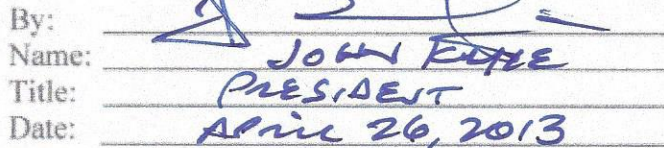 By:
Name: JOHN
Title: PRESIDENT
Date: APRIL 26, 2013